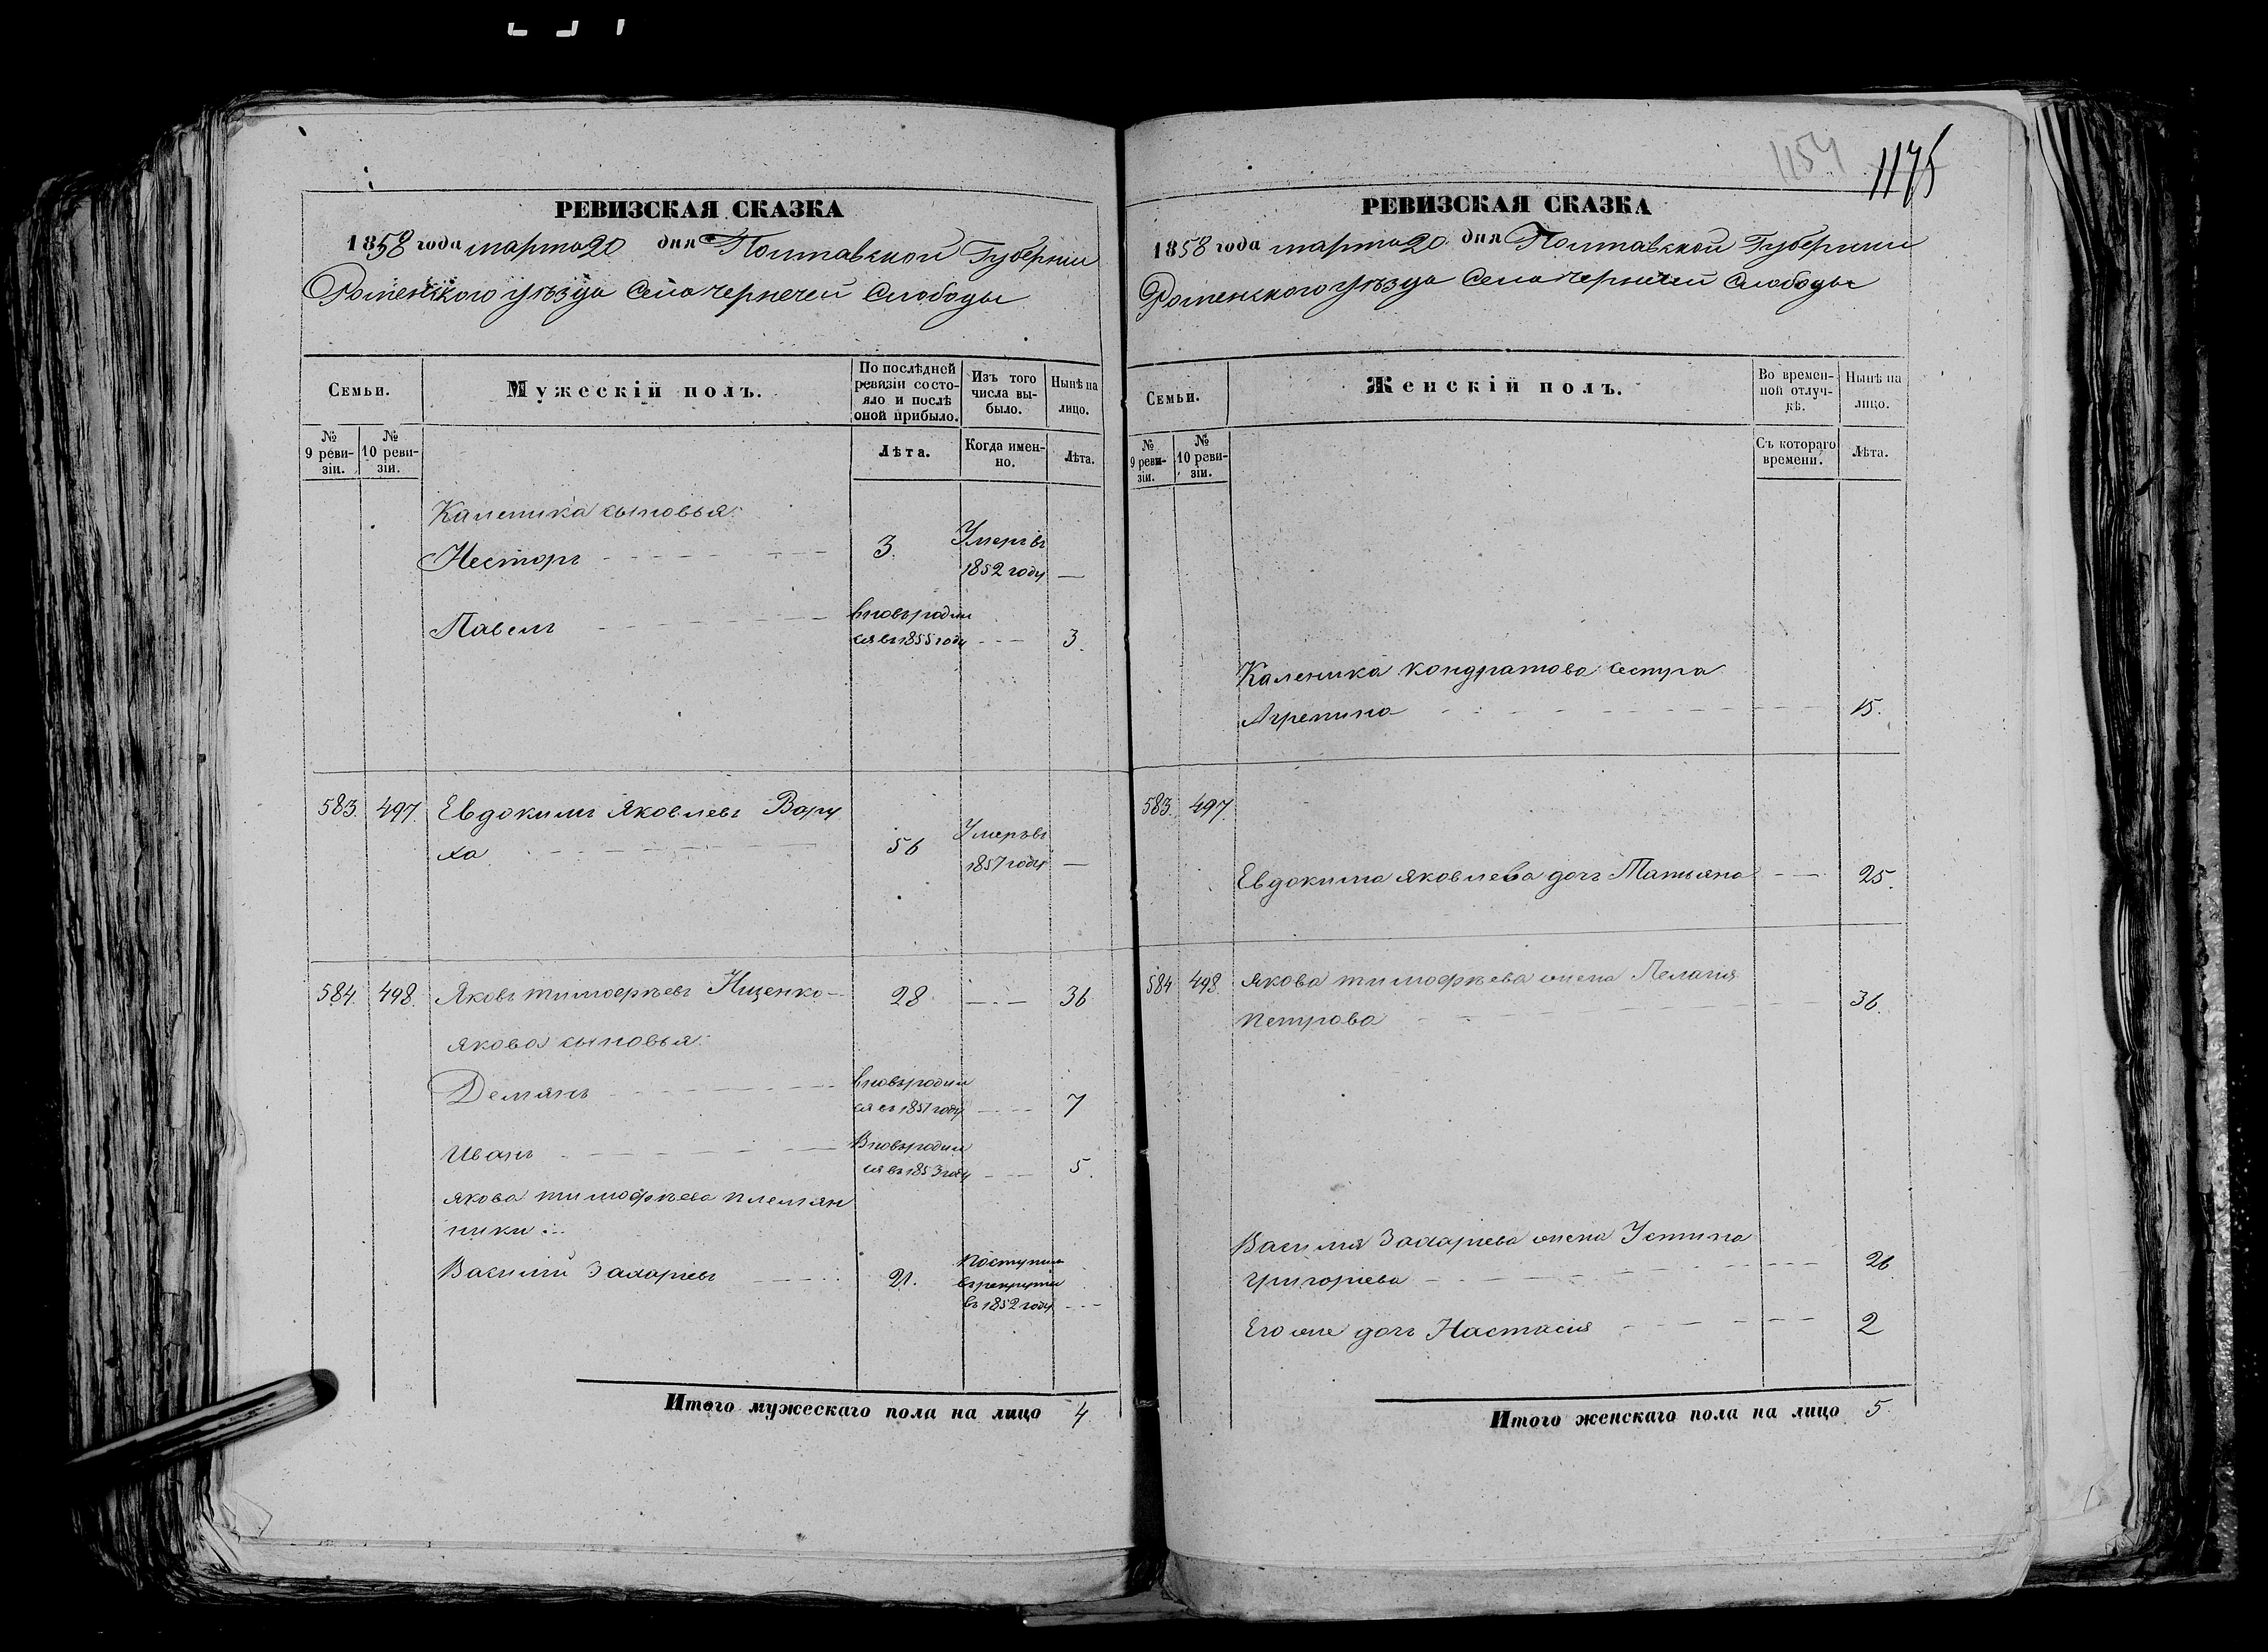 1154 1175
РЕВИЗСКАЯ СКАЗКА
1858 года марта 20 дня Полтавской Губернии
Роменского уѣзда Села чернечей Слободы
Семьи.
Мужескій полъ.
По послѣдней ревизіи состояло и послѣ оной прибыло.
Изъ того числа выбыло.
Нынѣ на лицо.
№ 9 ревизіи.
№ 10 ревизіи.
Лѣта.
Когда именно.
Лѣта.
Каленика сыновья:
Несторъ 3. Умеръ въ
1852 году —
Павелъ вновь родил
ся въ 1855 году 3.
583. 497. Евдокимъ Яковлевъ Вару
ха 56 Умеръ въ
1857 году —
584. 498. Яковъ тимофѣевъ Ниценко 28 36
якова сыновья:
Демянъ вновь родил
ся въ 1851 году 7
Иванъ Вновь родил
ся въ 1853 году 5.
якова тимофѣева племян
ники:
Василій Захаріевъ 21. Поступил
в рекруты
въ 1852 году
Итого мужескаго пола на лицо 4
РЕВИЗСКАЯ СКАЗКА
1858 года марта 20 дня Полтавской Губернии
Роменского уѣзда Села чернечей Слободы
Семьи.
Женскій полъ.
Во временной отлучкѣ.
Нынѣ на лицо.
№ 9 ревизіи.
№ 10 ревизіи.
Съ котораго времени.
Лѣта.
Каленика кондратова сестра
Агрепина 15.
583. 497.
Евдокима яковлева дочь Татьяна 25.
584 498. якова тимофѣева жена Пелагія
петрова 36.
Василія Захаріева жена Устина
григоріева 26.
Его же дочь Настасія 2
Итого женскаго пола на лицо 5